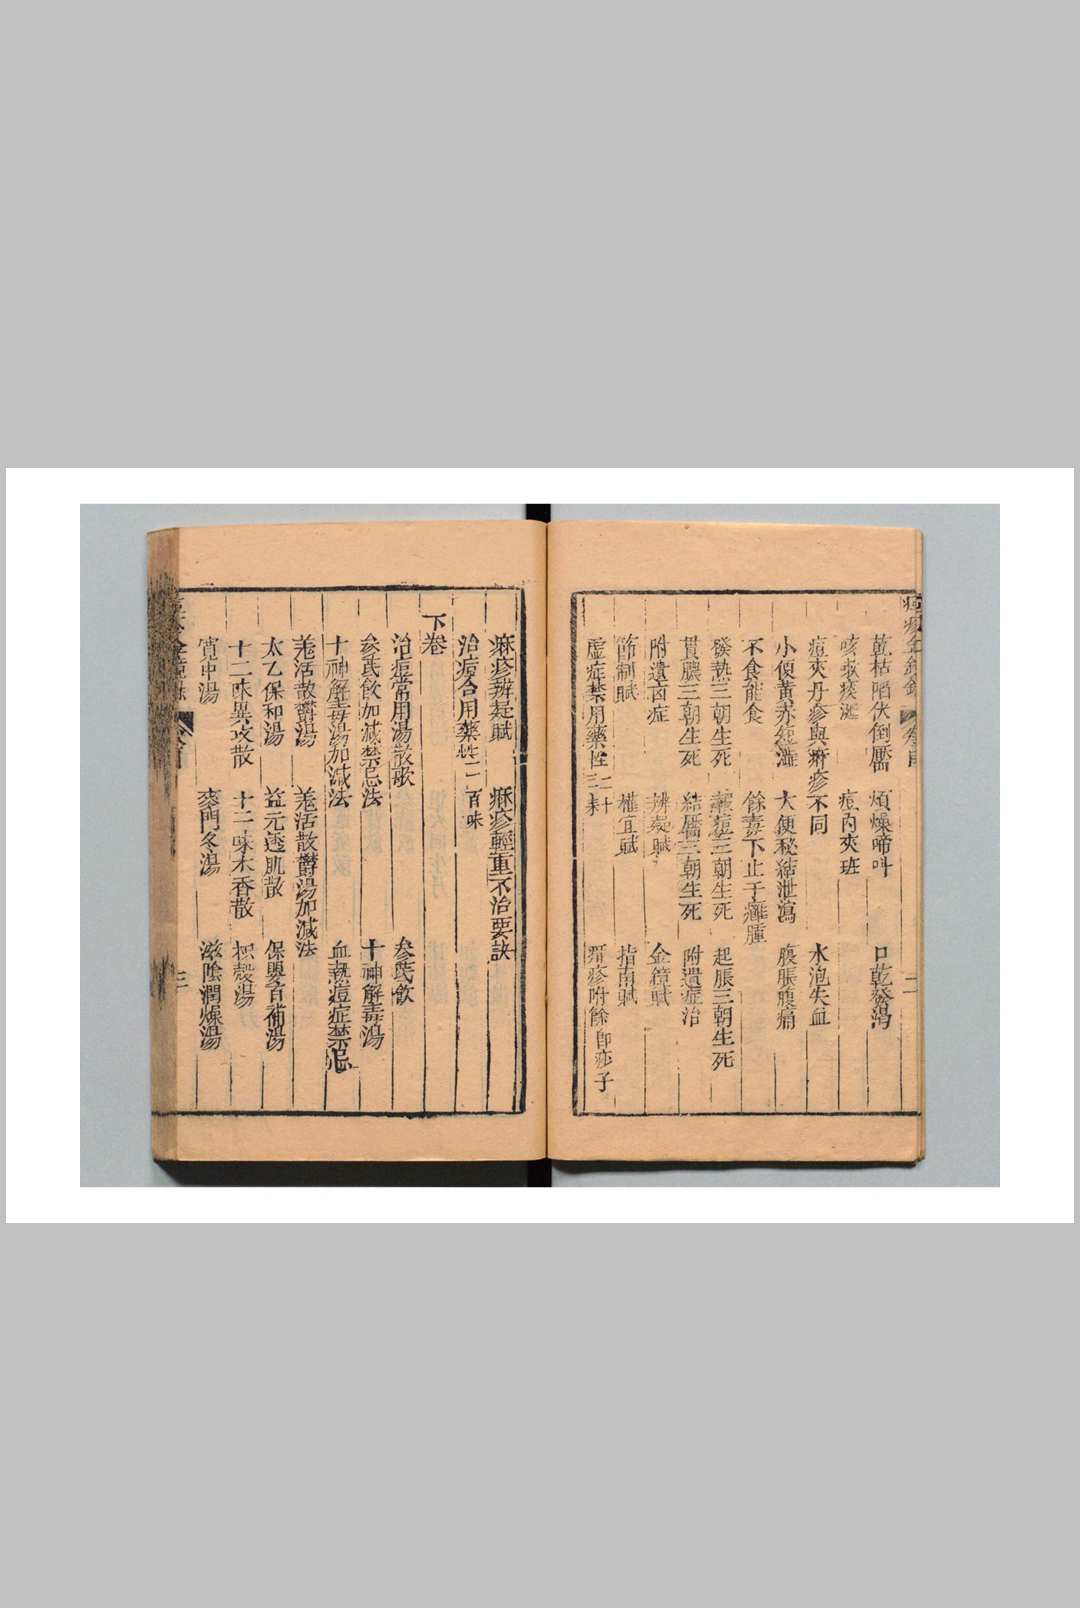 乾枯陷伏倒靨 煩燥啼叫 口乾發渴
咳嗽痰涎 痘內夾班
痘夾丹疹與痲疹不同 水泡失血
小便黃赤短澁 大便秘結泄瀉 腹脹腹痛
不食能食 餘毒下止于癰腫
發熱三朝生死 報痘三朝生死 起脹三朝生死
貫膿三朝生死 結靨三朝生死 附遺症治
附遺症 辨疑賦 金鏡賦
節制賦 權宜賦 指南賦
虛症禁用藥性二十三味 痲疹附餘
卷目 二
痲疹辨疑賦 痲疹輕重不治要訣
治痘合用藥性一百味
下卷
治痘常用湯散歌 參芪飲
參芪飲加減禁忌法 十神解毒湯
十神解毒湯加減法 血熱痘症禁忌
羌活散欝湯 羌活散欝湯加減法
太乙保和湯 益元透肌散 保嬰百補湯
十二味異攻散 十二味木香散 枳殼湯
寬中湯 麥門冬湯 滋陰潤燥湯
三